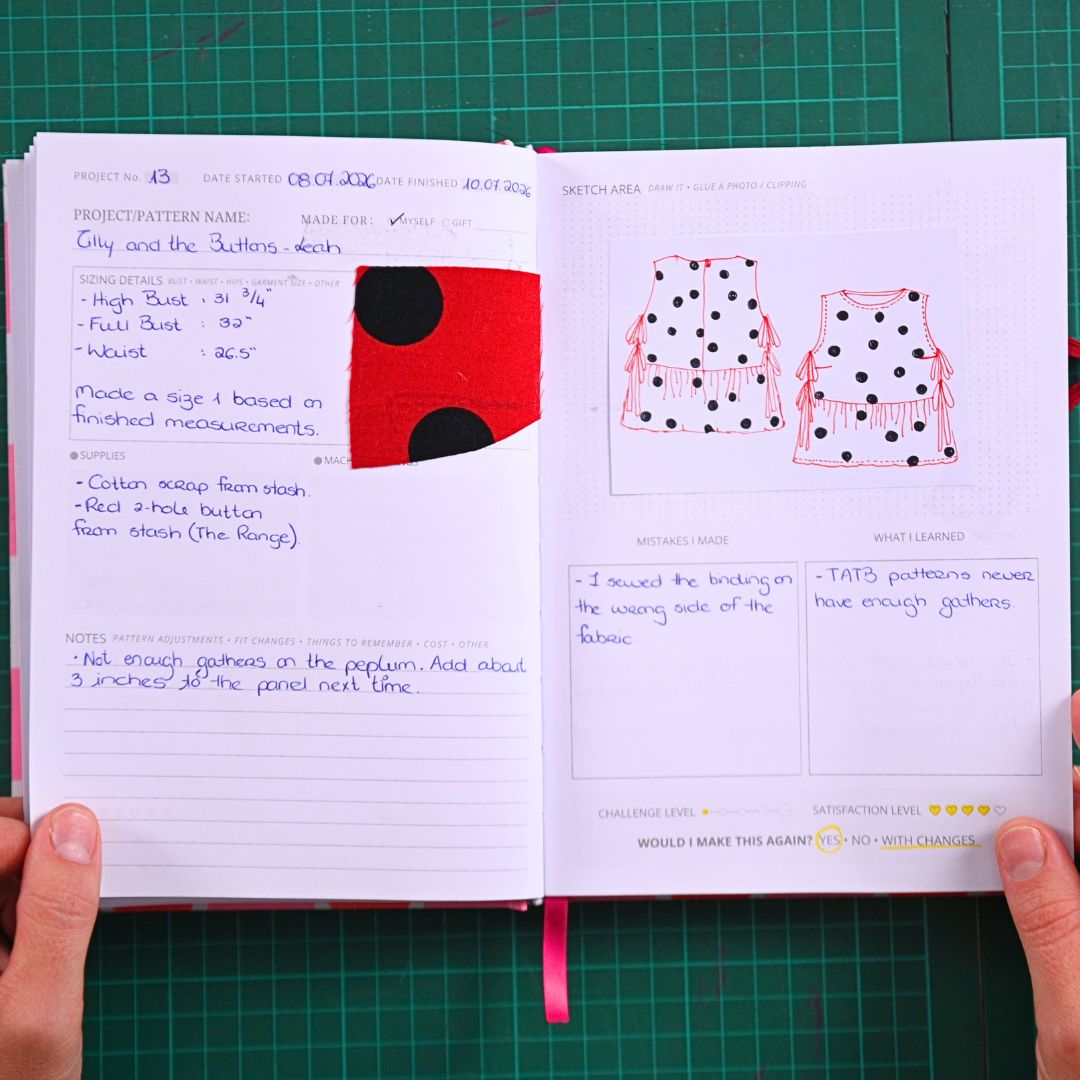 PROJECT No. 13 DATE STARTED 08.07.2026 DATE FINISHED 10.07.2026
PROJECT/PATTERN NAME: MADE FOR: ✓MYSELF ○GIFT
Tilly and the Buttons - Leah
SIZING DETAILS BUST • WAIST • HIPS • GARMENT SIZE • OTHER
- High Bust : 31 3/4"
- Full Bust : 32"
- Waist : 26.5"
Made a size 1 based on
finished measurements.
SUPPLIES
- Cotton scrap from stash.
- Red 2-hole button
from stash (The Range).
NOTES PATTERN ADJUSTMENTS • FIT CHANGES • THINGS TO REMEMBER • COST • OTHER
· Not enough gathers on the peplum. Add about
3 inches to the panel next time.
SKETCH AREA DRAW IT • GLUE A PHOTO / CLIPPING
MISTAKES I MADE
- I sewed the binding on
the wrong side of the
fabric
WHAT I LEARNED
- TATB patterns never
have enough gathers.
CHALLENGE LEVEL SATISFACTION LEVEL
WOULD I MAKE THIS AGAIN? YES • NO • WITH CHANGES